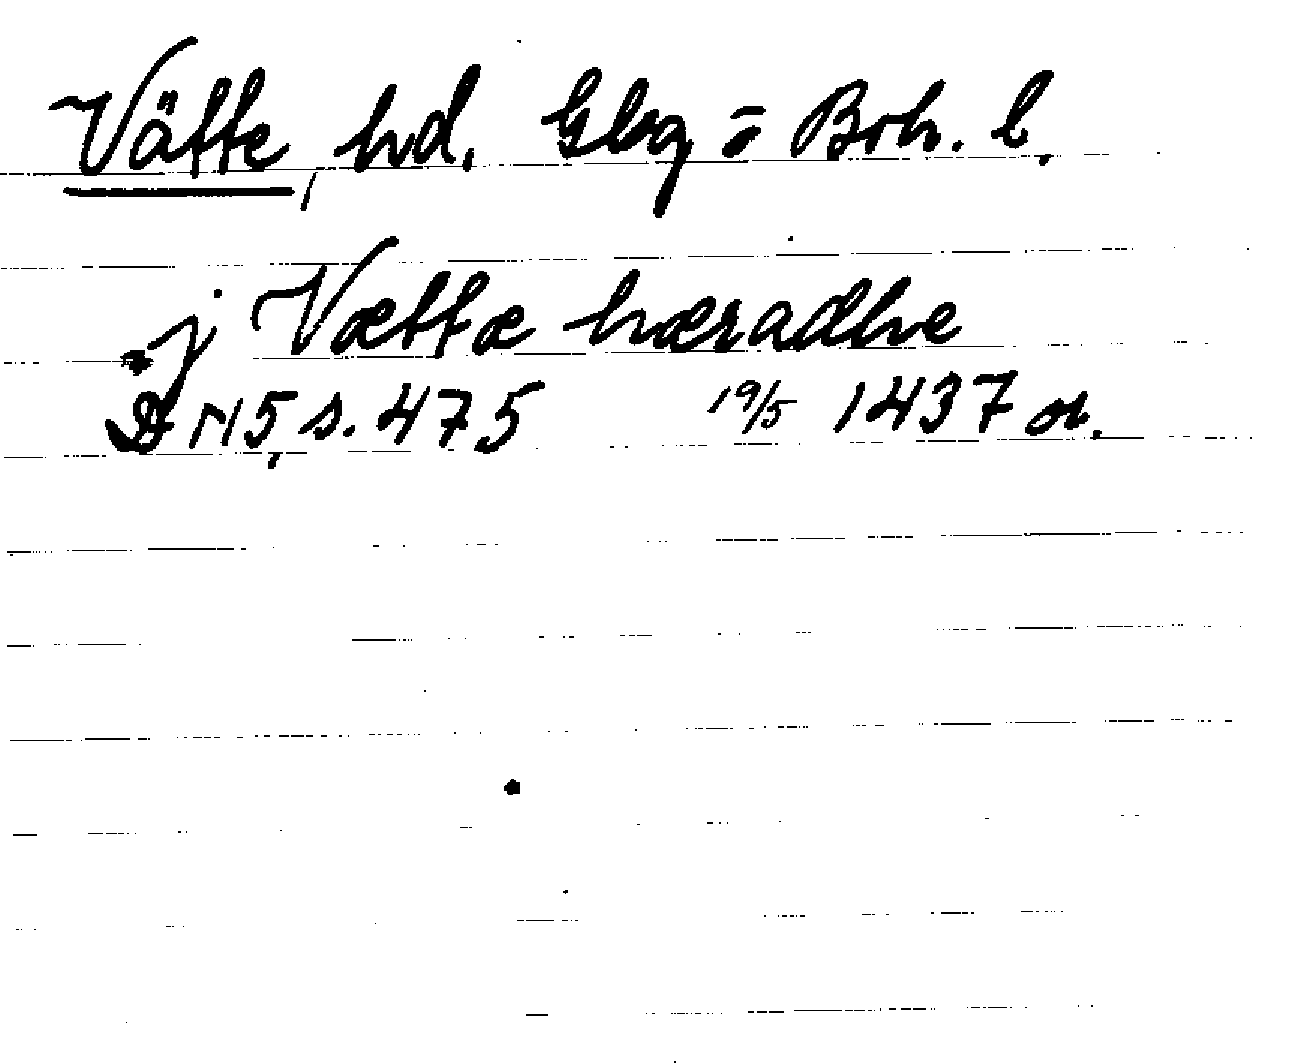 Vätte, hd. Gbg o Boh. l.
j Vættæ hæradhe
DN 5, s. 475 19/5 1437 or.